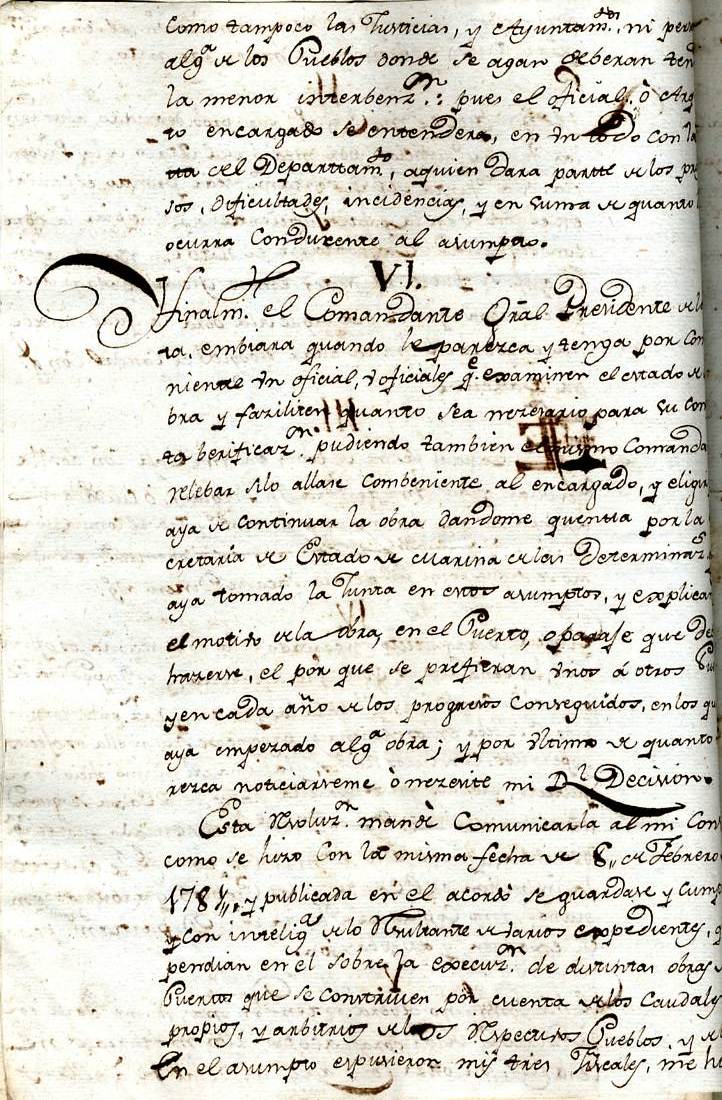 como tampoco las Justicias, y Ayuntam.tos ni per
alg.a de los Pueblos donde se agan deberan ten
la menor interbenz.on: pues el oficial, ò
to encargado se entenderà, en un todo con la
ta del Departtam.to, aquien dara partte de los p
sos, dificultades, incidencias, y en suma de quanto
ocurra Conducente al asumpto.
VI.
Finalm.te el Comandante Gral. Presidente de la
ta, embiara quando le parezca y tenga por con
niente un oficial, ù oficiales q.e examinen el estado de
bra y faziliten quanto sea nezesario para su con
ta berificaz.on pudiendo tambien el mismo Comanda
relebar silo allase combeniente al encargado, y eligir
aya de continuar la obra dandome quentta por la
cretaría de Estado de Marina de las Determinaz.s
aya tomado la Junta en estos asumptos, y explica
el motivo de la obra, en el Puerto, o paraje que de
hazerse, el por que se prefieran unos á otros
y en cada año de los progresos conseguidos, en los q
aya empezado alg.a obra; y por ultimo de quanto
rezca noticiarseme ò nezesite mi R.l Decision.
Esta Resoluz.on mandè Comunicarla al mi Cons
como se hizo Con la misma fecha de 8,, de Febrero
y publicada en el acordò se guardase y Cump
y con intelig.a de lo Resultante de varios expedientes, q
pendian en él sobre la execuz.on de distintas obras
Puertos que se Construien por cuenta de los Caudales
propios, y arbitrios de los Respectivos Pueblos, y de
En el asumpto espusieron mis tres Fiscales, me h